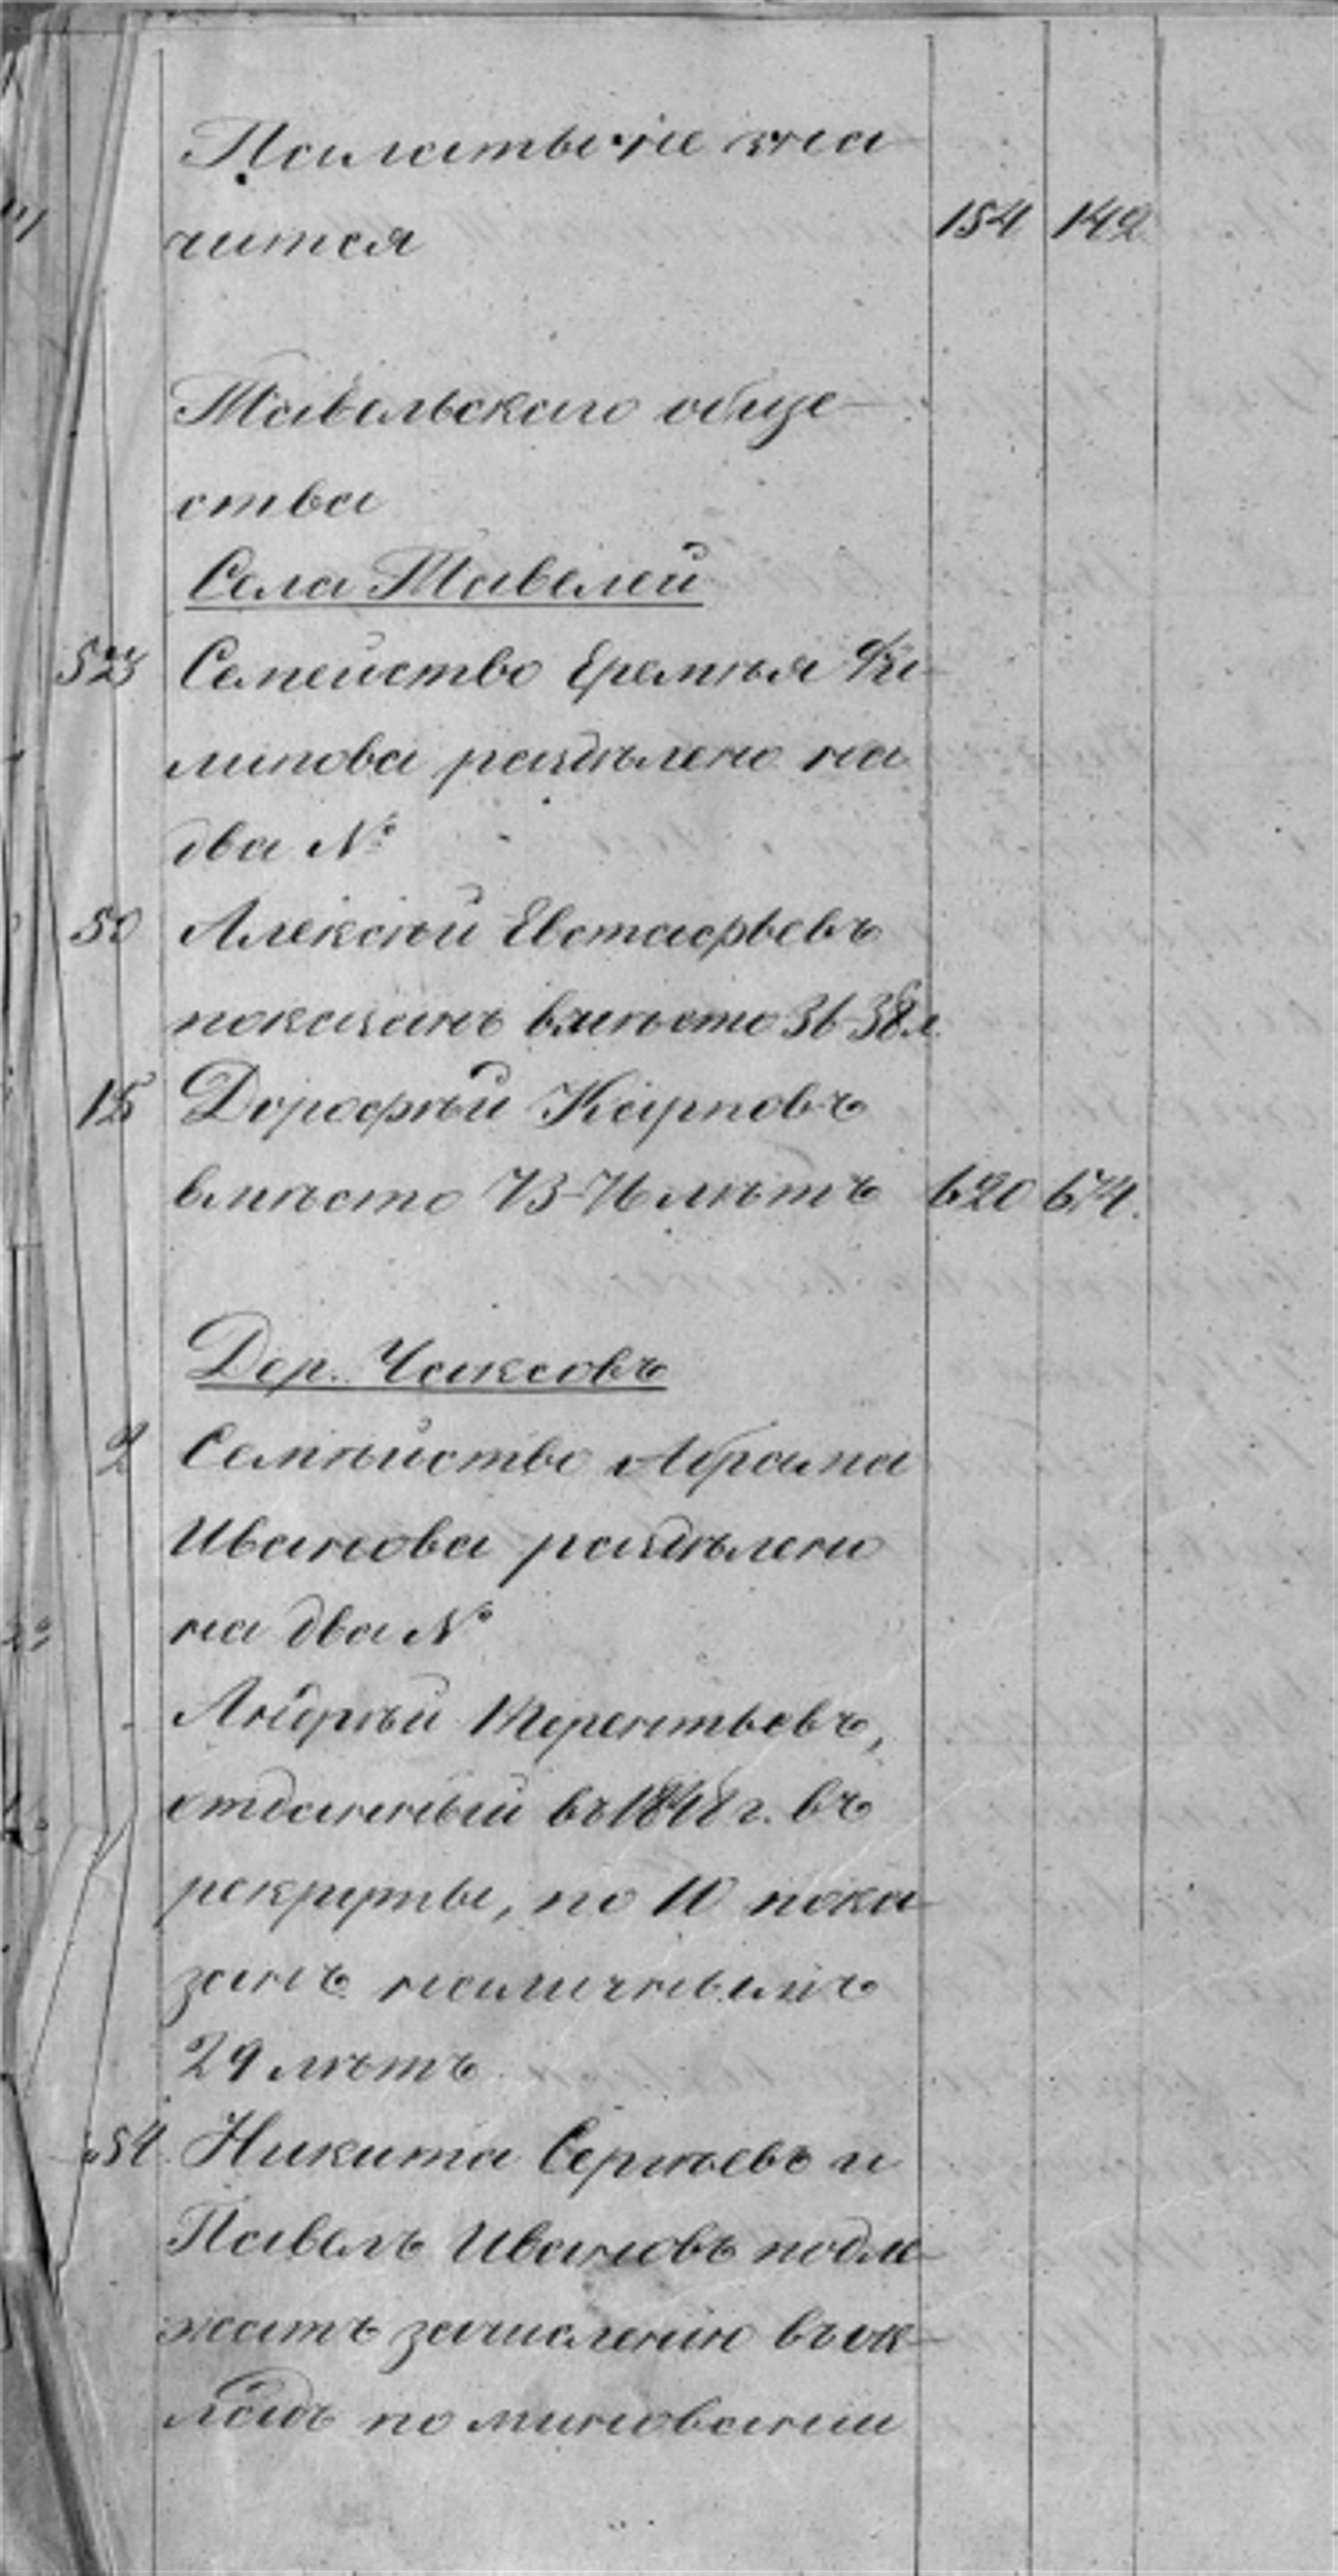 Палатью не зна-
чится 154 142
Тавельскаго обще-
ства
Села Тавелей
523 Семейство Еремѣя Фи-
липова раздѣлено на
два №
50 Алексѣй Евстафьевъ
показанъ вмѣсто 36-38 л.
15 Дорофѣй Карповъ
вмѣсто 73-76 лѣтъ 620 674.
Дер. Чаксовъ
2 Семѣйство Абрама
Иванова раздѣлено
на два №
Андрѣй Терентьевъ,
отданный въ 1848 г. въ
рекруты, по 10 пока-
занъ наличнымъ
29 лѣтъ
54 Никита Сергѣевъ и
Павелъ Ивановъ подле-
жатъ зачисленію въ ок-
ладъ по миновании